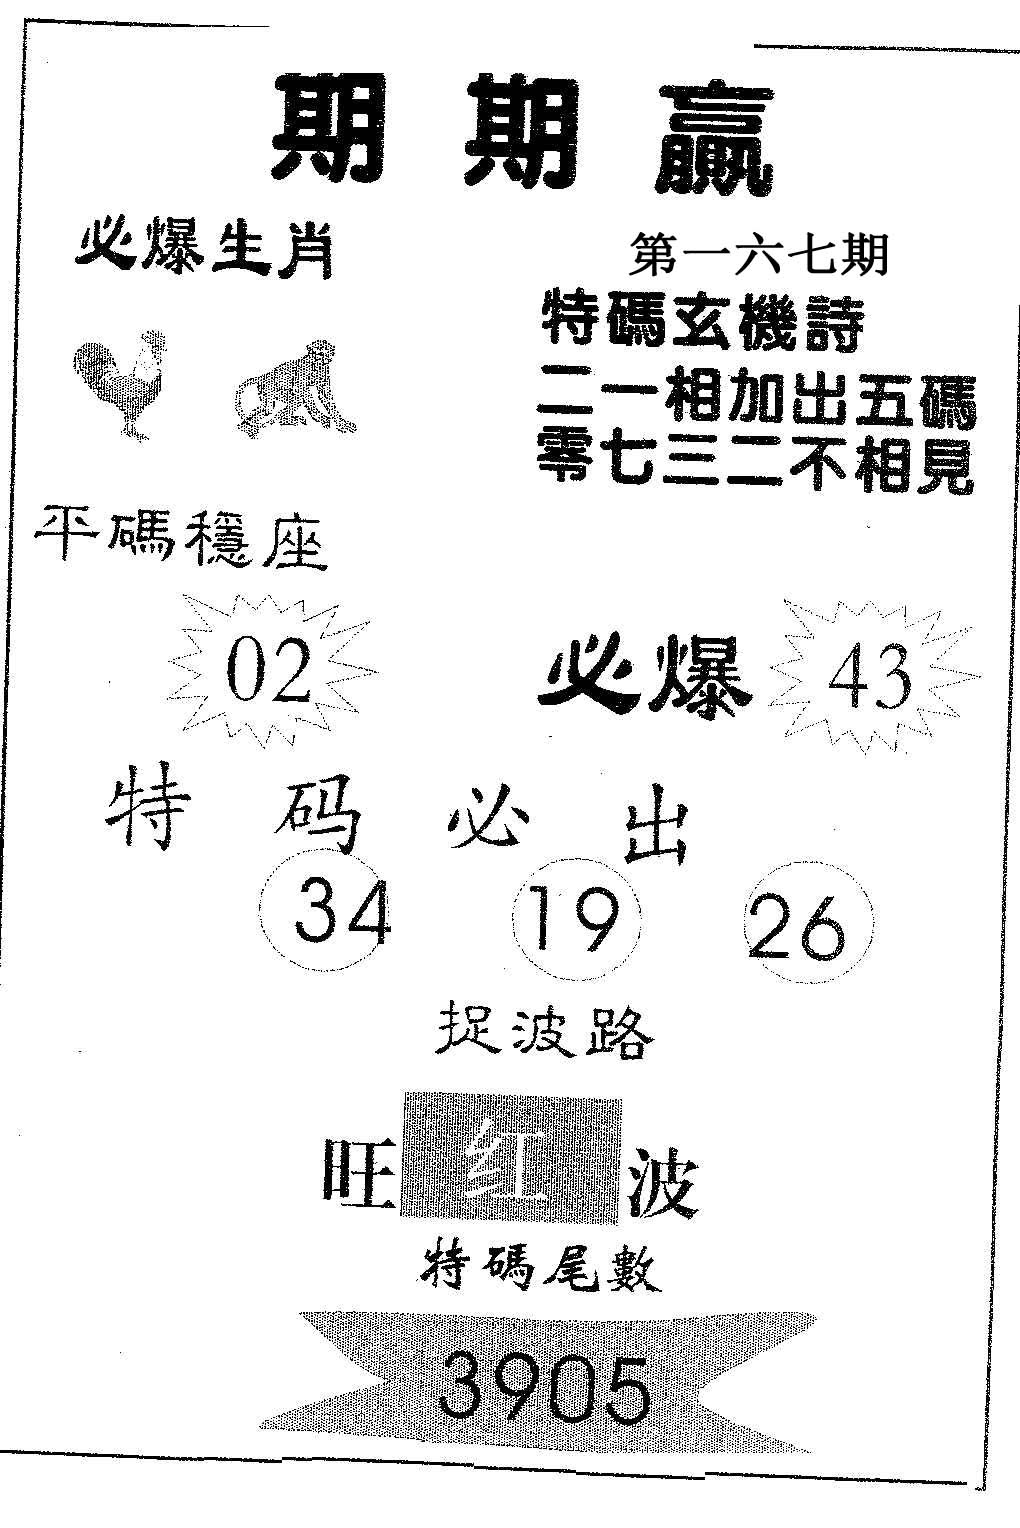 期期贏
必爆生肖
第一六七期
特碼玄機詩
二一相加出五碼
零七三二不相見
平碼穩座
02
必爆 43
特码必出
34 19 26
捉波路
旺红波
特碼尾數
3905